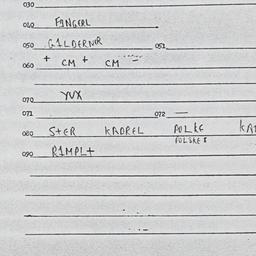 030
040 FINGERL
050 GILDERNR 051
060 + CM + CM
070 YUX
071 072 —
080 S+ER KADREL POLKE KAT
POLSKE
090 RIMPL+